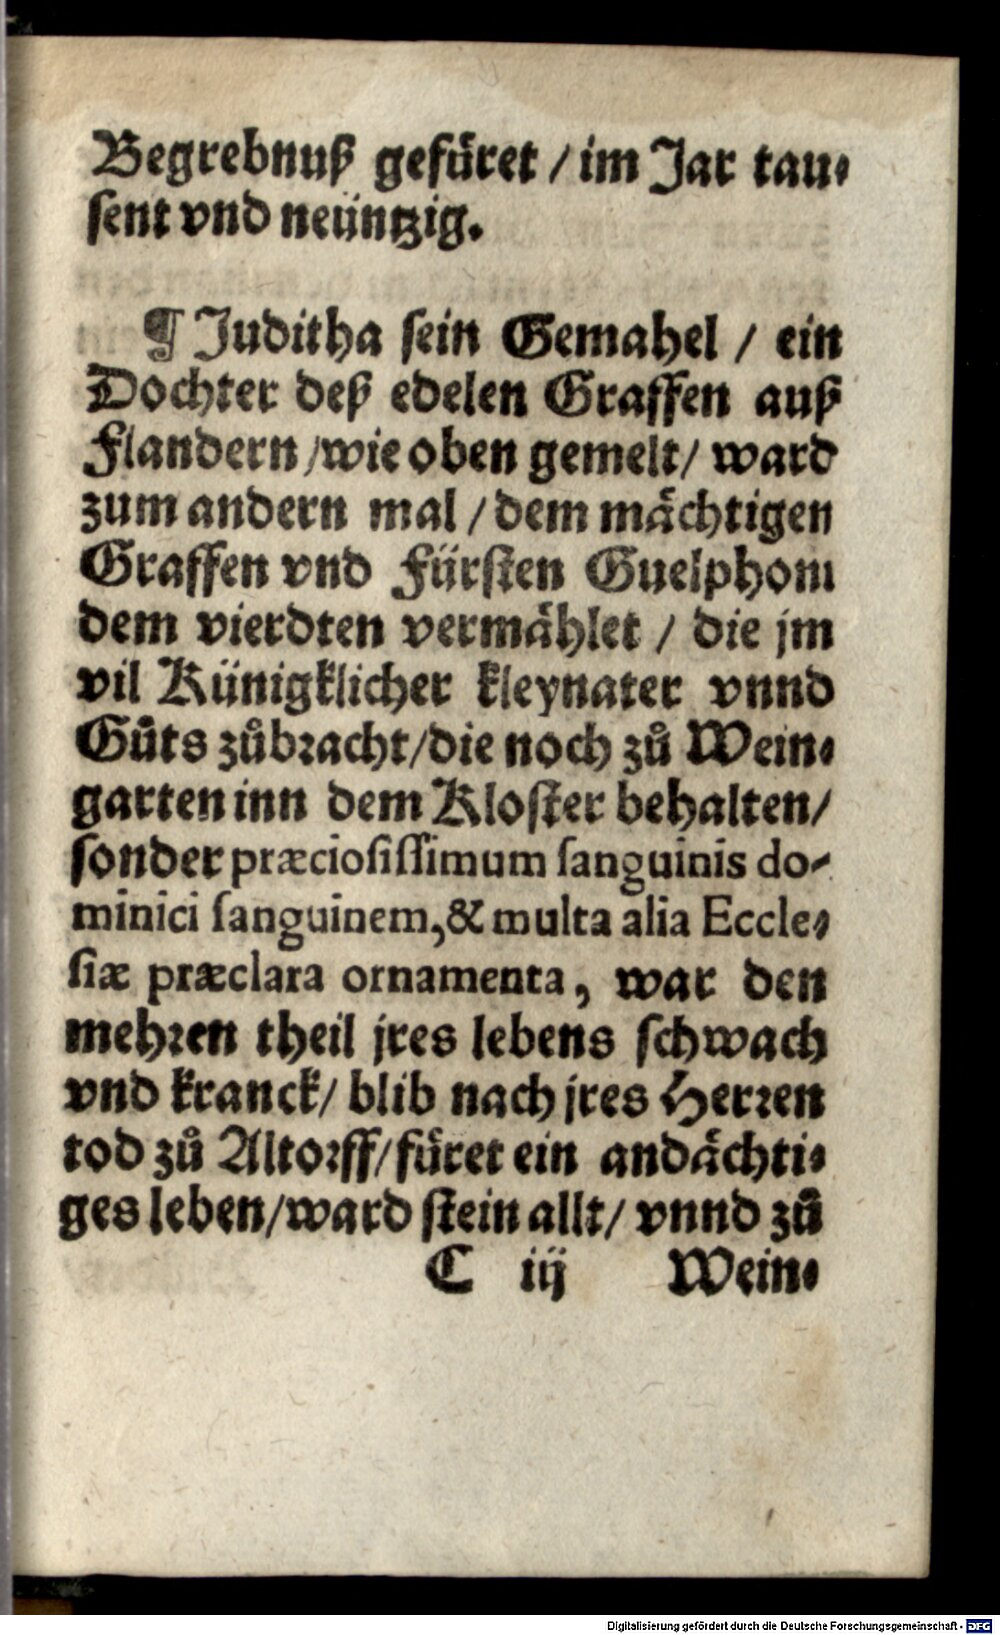 Begrebnuß gefüret / im Jar tau⸗
sent vnd neüntzig.
¶ Juditha sein Gemahel / ein
Dochter deß edelen Graffen auß
Flandern / wie oben gemelt / ward
zum andern mal / dem mächtigen
Graffen vnd Fürsten Guelphom
dem vierdten vermählet / die jm
vil Künigklicher kleynater vnnd
Gůts zůbracht / die noch zů Wein⸗
garten inn dem Kloster behalten /
sonder præciosissimum sanguinis do-
minici sanguinem, & multa alia Eccle-
siæ præclara ornamenta, war den
mehren theil jres lebens schwach
vnd kranck / blib nach jres Herren
tod zů Altorff / füret ein andächti⸗
ges leben / ward stein allt / vnnd zů
C iij Wein⸗
Digitalisierung gefördert durch die Deutsche Forschungsgemeinschaft - DFG